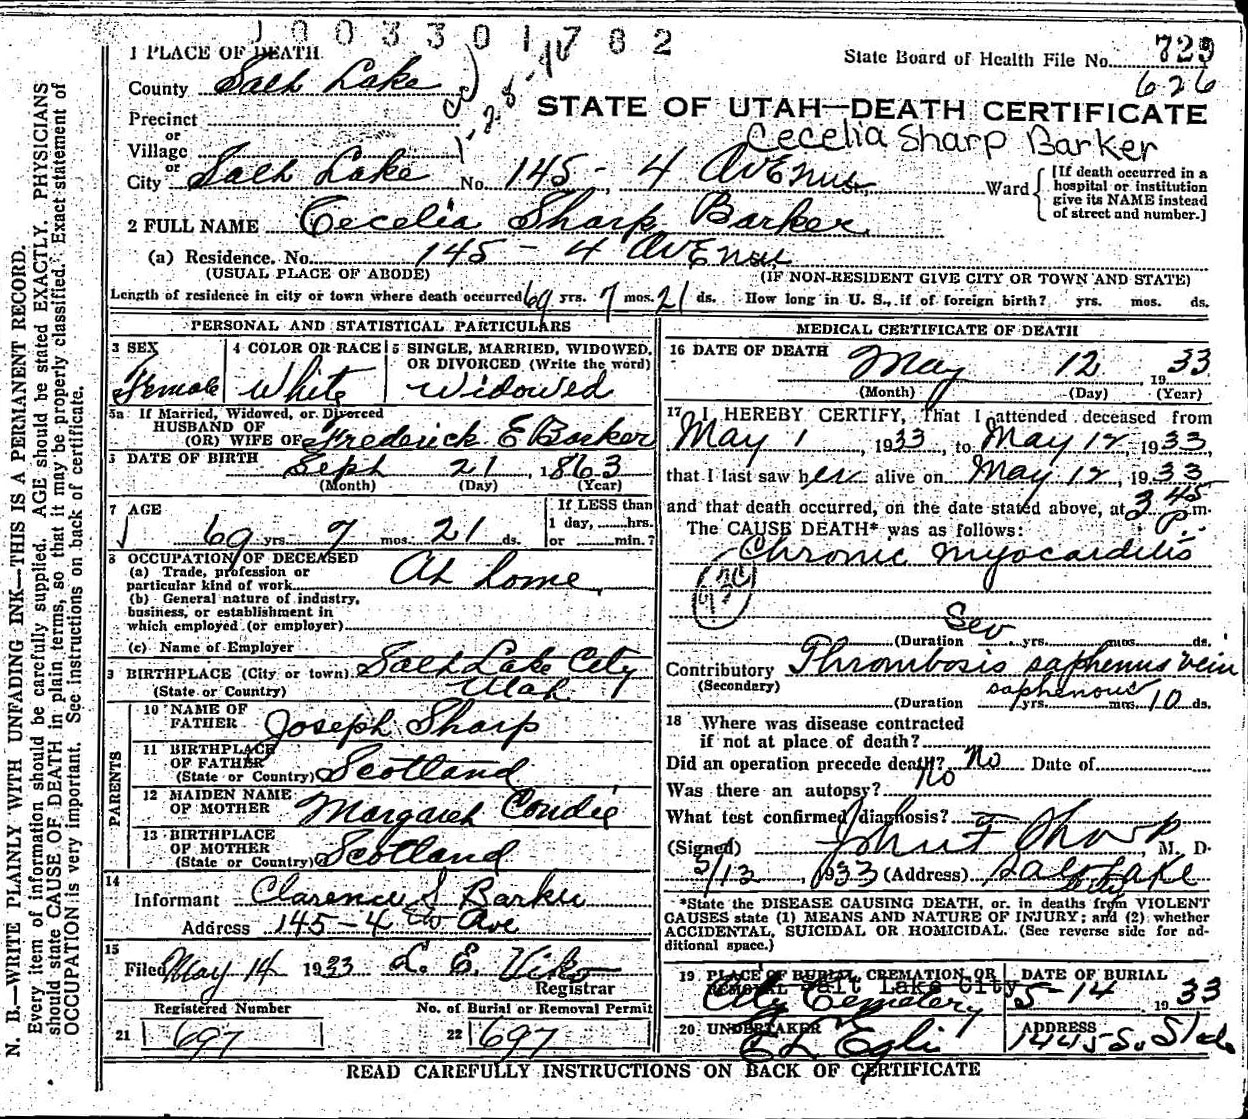 1003301782
1 PLACE OF DEATH
State Board of Health File No. 729
626
County Salt Lake
STATE OF UTAH—DEATH CERTIFICATE
Precinct
or
Cecelia Sharp Barker
Village
or
City Salt Lake No. 145 - 4 Avenue Ward
[If death occurred in a
hospital or institution
give its NAME instead
of street and number.]
2 FULL NAME Cecelia Sharp Barker
(a) Residence. No. 145 - 4 Avenue
(USUAL PLACE OF ABODE) (IF NON-RESIDENT GIVE CITY OR TOWN AND STATE)
Length of residence in city or town where death occurred 69 yrs. 7 mos. 21 ds. How long in U. S., if of foreign birth? yrs. mos. ds.
PERSONAL AND STATISTICAL PARTICULARS
3 SEX
Female
4 COLOR OR RACE
White
5 SINGLE, MARRIED, WIDOWED,
OR DIVORCED (Write the word)
Widowed
5a If Married, Widowed, or Divorced
HUSBAND OF
(OR) WIFE OF Frederick E Barker
DATE OF BIRTH
Sept 21 1863
(Month) (Day) (Year)
7 AGE
69 yrs. 7 mos. 21 ds.
If LESS than
1 day, hrs.
or min.?
8 OCCUPATION OF DECEASED
(a) Trade, profession or
particular kind of work At home
(b) General nature of industry,
business, or establishment in
which employed (or employer)
(c) Name of Employer
9 BIRTHPLACE (City or town) Salt Lake City
(State or Country) Utah
PARENTS
10 NAME OF
FATHER Joseph Sharp
11 BIRTHPLACE
OF FATHER
(State or Country) Scotland
12 MAIDEN NAME
OF MOTHER Margaret Condie
13 BIRTHPLACE
OF MOTHER
(State or Country) Scotland
14
Informant Clarence S Barker
Address 145 - 4 th Ave
15
Filed May 14 1933 L. E. Viko
Registrar
Registered Number
21 697
No. of Burial or Removal Permit
22 697
MEDICAL CERTIFICATE OF DEATH
16 DATE OF DEATH
May 12 1933
(Month) (Day) (Year)
17 I HEREBY CERTIFY, That I attended deceased from
May 1, 1933, to May 12, 1933,
that I last saw her alive on May 12, 1933
and that death occurred, on the date stated above, at 3 45 P. m.
The CAUSE DEATH* was as follows:
Chronic Myocarditis
Sev
(Duration yrs. mos. ds.
Contributory Thrombosis saphenus vein
(Secondery) saphenous
(Duration yrs. mos. 10 ds.
18 Where was disease contracted
if not at place of death?
Did an operation precede death? No Date of
Was there an autopsy? No
What test confirmed diagnosis?
(Signed) John F Sharp, M. D.
5/13, 1933 (Address) Salt Lake
City
*State the DISEASE CAUSING DEATH, or. in deaths from VIOLENT
CAUSES state (1) MEANS AND NATURE OF INJURY; and (2) whether
ACCIDENTAL, SUICIDAL OR HOMICIDAL. (See reverse side for ad-
ditional space.)
19 PLACE OF BURIAL, CREMATION, OR
REMOVAL Salt Lake City
City Cemetery
DATE OF BURIAL
5-14 1933
20 UNDERTAKER
E L Egli
ADDRESS
READ CAREFULLY INSTRUCTIONS ON BACK OF CERTIFICATE
N. B.—WRITE PLAINLY WITH UNFADING INK—THIS IS A PERMANENT RECORD.
Every item of information should be carefully supplied. AGE should be stated EXACTLY. PHYSICIANS
should state CAUSE OF DEATH in plain terms, so that it may be properly classified. Exact statement of
OCCUPATION is very important. See instructions on back of certificate.